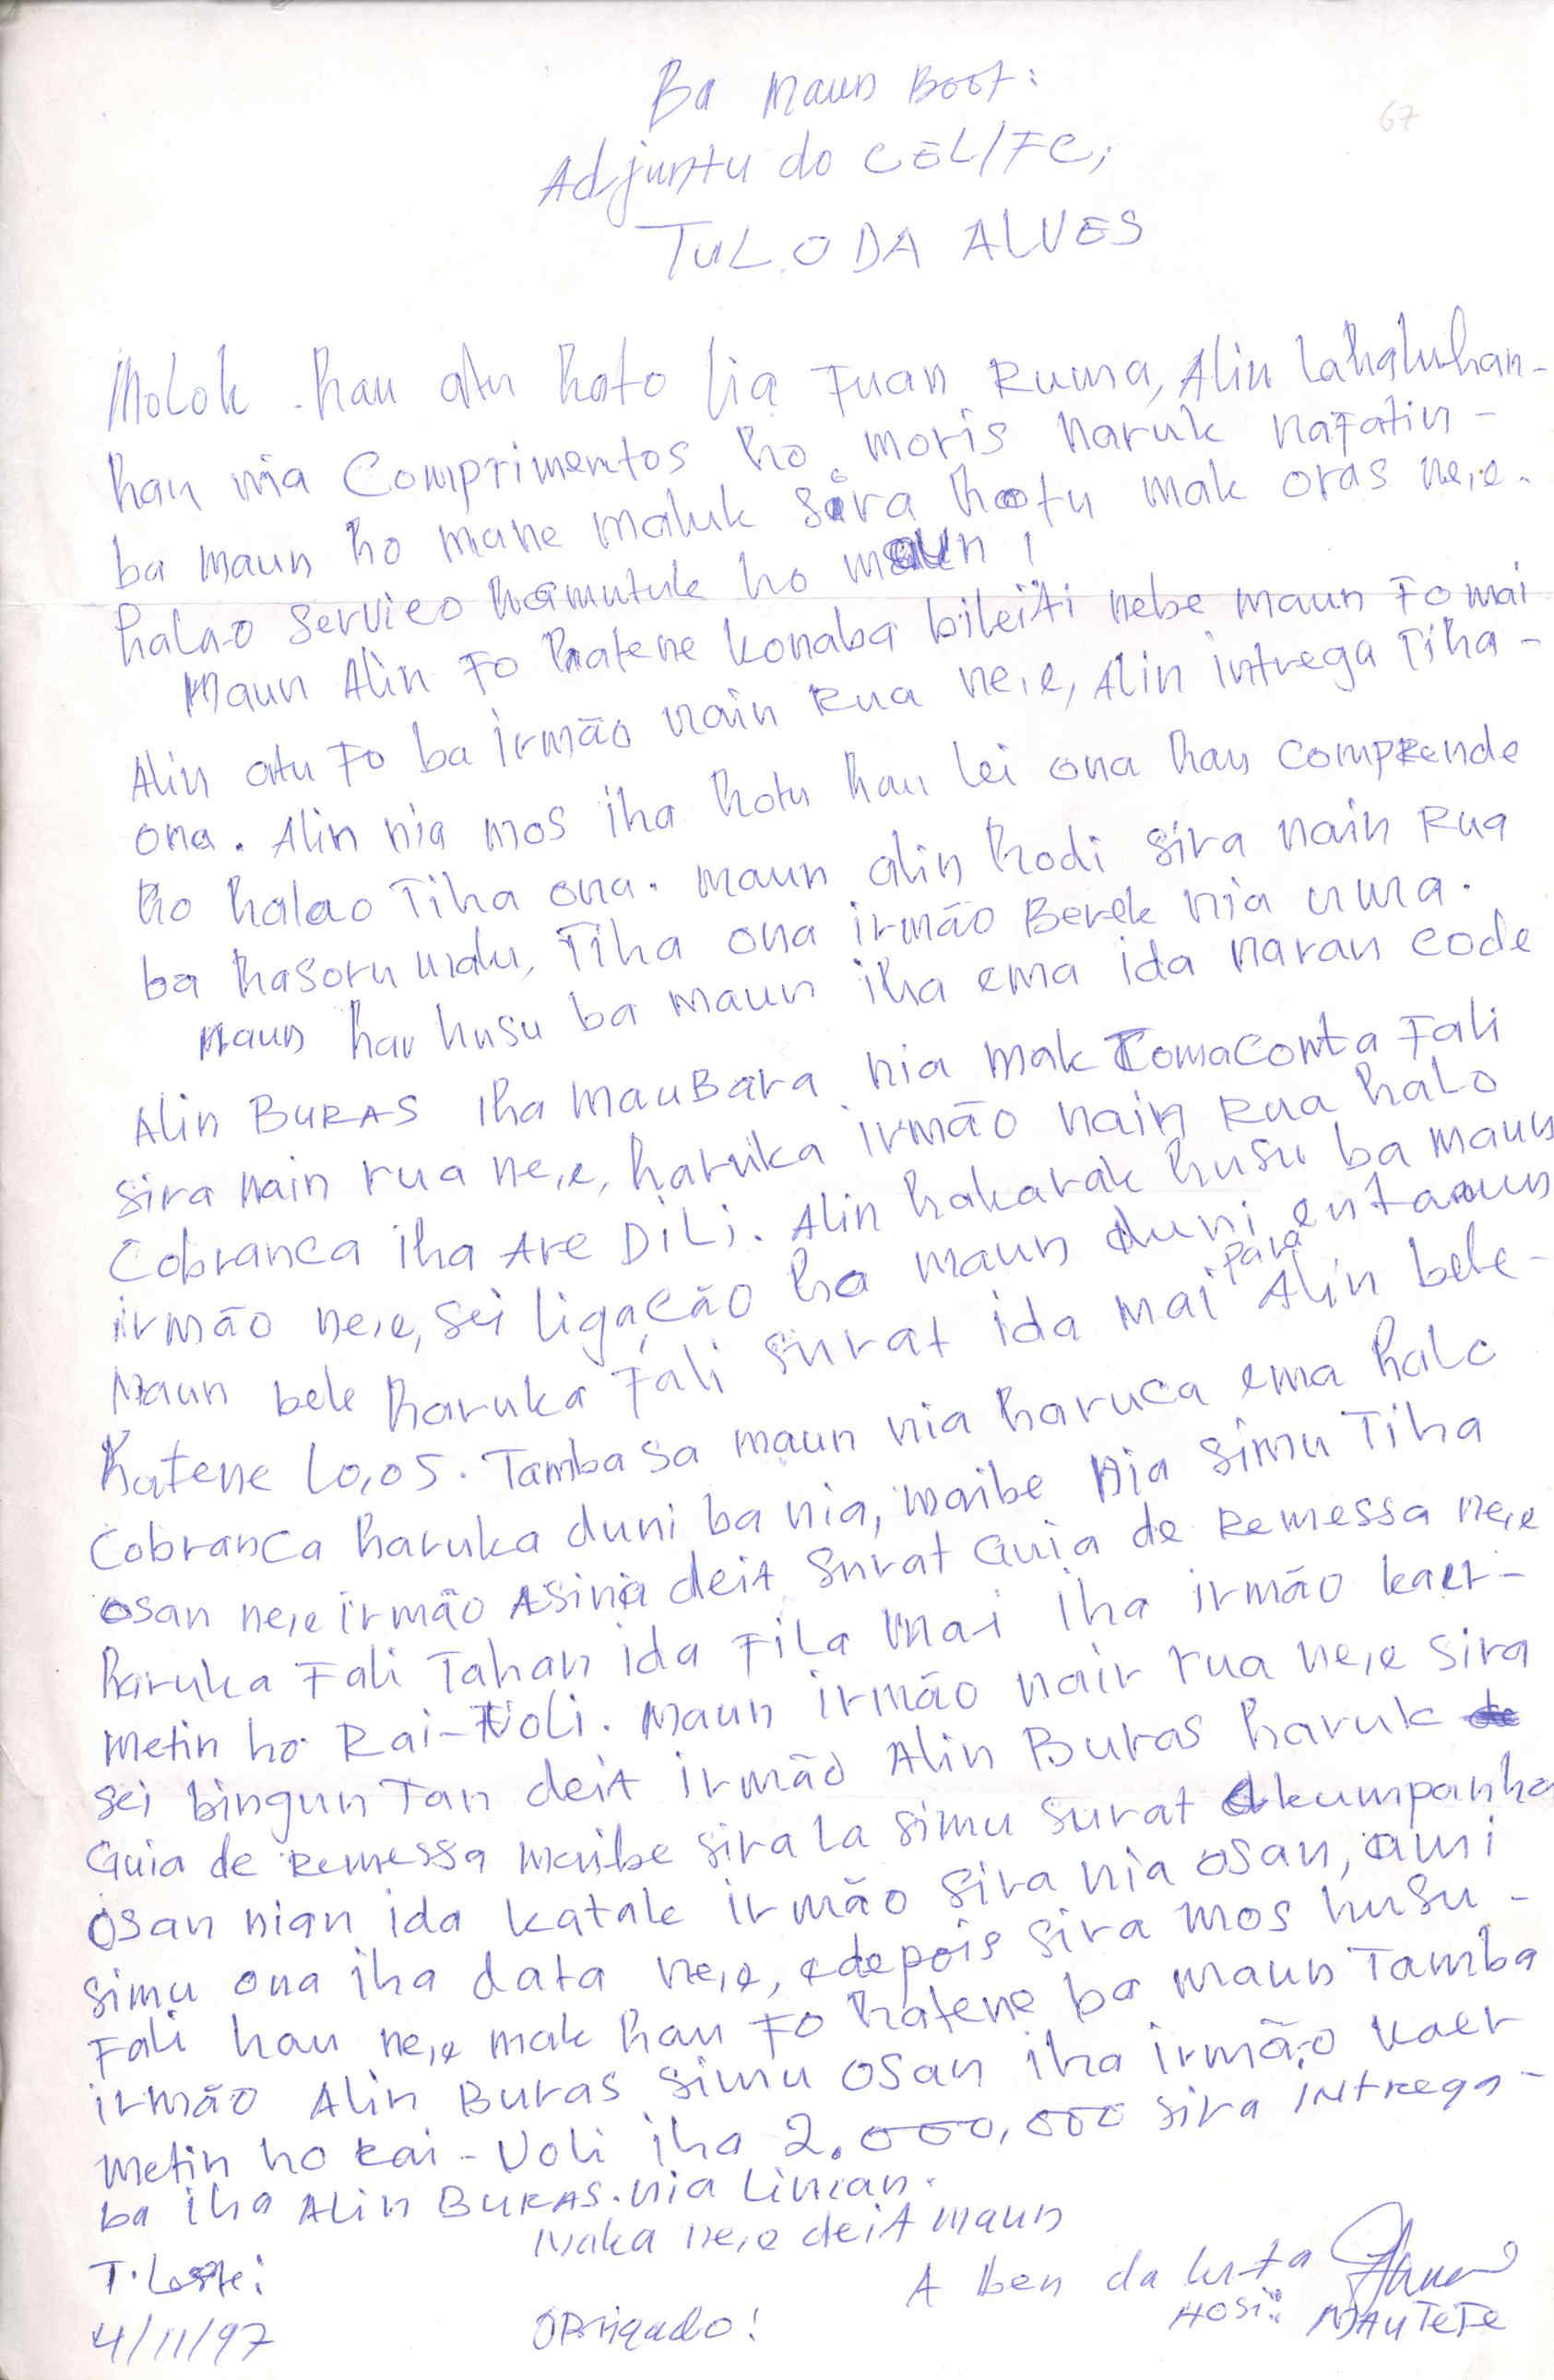 67
Ba Maun Boot:
Adjuntu do CEL/FC;
TULODA ALVES
Molok hau atu hato lia Fuan Ruma, Alin lahaluhan-
hau nia Comprimentos ho moris naruk nafatin-
ba maun ho mane maluk sira hotu mak oras ne,e.
halao servico hamutuk ho maun!
Maun Alin Fo hatene konaba bileiti nebe maun Fo mai
Alin atu Fo ba irmão nain Rua ne,e, Alin intrega Tiha-
ona. Alin nia mos iha hotu hau lei ona hau comprende
ho halao Tiha ona. maun alin hodi sira nain Rua
ba hasoru malu, Tiha ona irmão Berek nia uma.
Maun hau husu ba maun iha ema ida naran code
Alin BURAS iha mauBara nia mak Tomaconta Fali
sira nain rua ne,e, haruka irmão nain Rua halo
Cobranca iha Are DiLi. Alin hakarak husu ba maun
irmão ne,e, sei ligação ho maun duni entaaun
Maun bele haruka Fali surat ida mai para Alin bele-
hatene lo,os. Tambasa maun nia haruca ema halo
Cobranca haruka duni ba nia, maibe Nia simu Tiha
osan ne,e irmão Asina deit surat Guia de Remessa ne,e
haruka Fali Tahan ida Fila mai iha irmão kaer-
metin ho Rai-Noli. Maun irmão nair rua ne,e sira
sei bingun Tan deit irmão Alin Buras haruk
Guia de Remessa maibe sira la simu surat Akumpanha
osan nian ida katak irmão sira nia osan, ami
simu ona iha data ne,e, edepois sira mos husu-
Fali hau ne,e mak hau Fo hatene ba maun Tamba
irmão Alin Buras simu osan iha irmão kaer
metin ho Rai-Noli iha 2.000,000 sira intrega-
ba iha Alin BURAS.nia Linian.
Naka ne,e deit maun
T. Leste:
A ben da luta
4/11/97
OBrigado!
HOSi: MAUTEFE